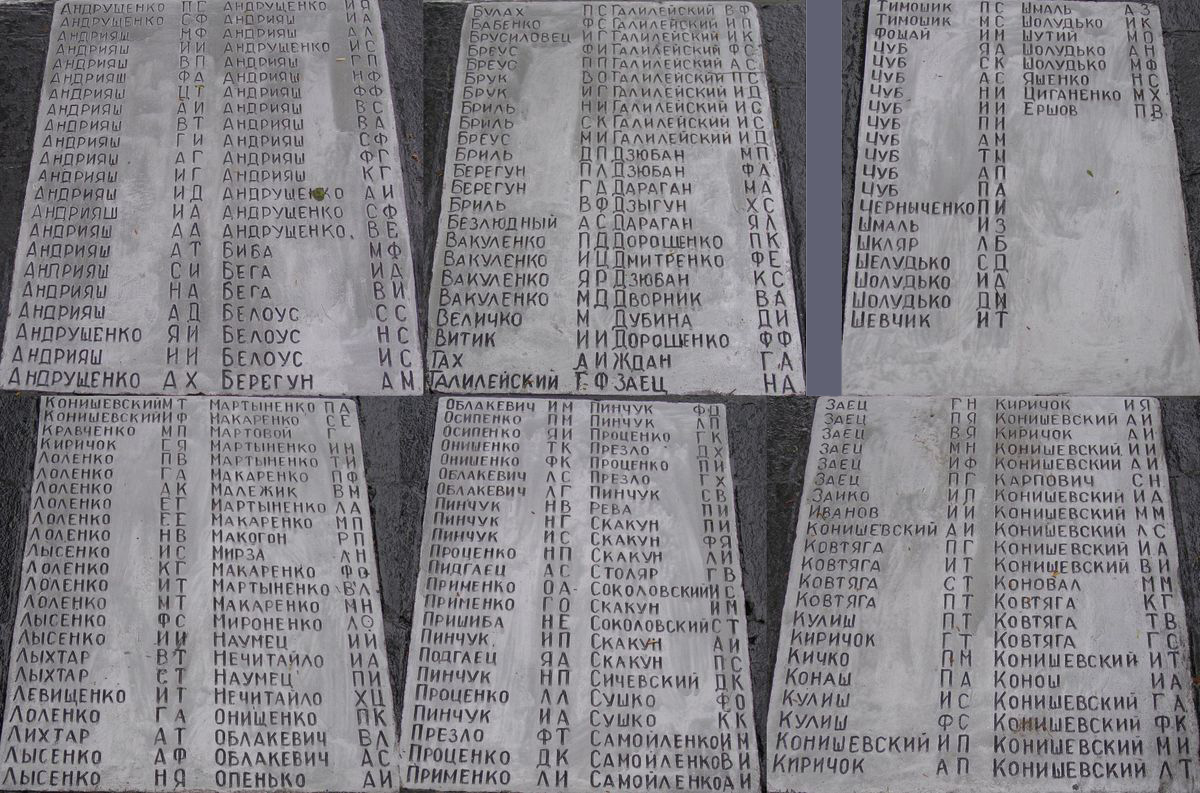 АНДРУЩЕНКО ПС АНДРУЩЕНКО ИЯ
АНДРУЩЕНКО СФ АНДРИЯШ ИА
АНДРИЯШ МФ АНДРИЯШ АЛ
АНДРИЯШ ИИ АНДРУЩЕНКО ИС
АНДРИЯШ ВП АНДРИЯШ ГП
АНДРИЯШ ФА АНДРИЯШ НФ
АНДРИЯШ ЦТ АНДРИЯШ ФФ
АНДРИЯШ АИ АНДРИЯШ ВС
АНДРИЯШ ВТ АНДРИЯШ ВА
АНДРИЯШ ГИ АНДРИЯШ СФ
АНДРИЯШ АГ АНДРИЯШ ФГ
АНДРИЯШ ИГ АНДРИЯШ КГ
АНДРИЯШ ИД АНДРУЩЕНКО АИ
АНДРИЯШ ИА АНДРУЩЕНКО СФ
АНДРИЯШ АА АНДРУЩЕНКО ВЕ
АНДРИЯШ АТ БИБА МФ
АНДРИЯШ СИ БЕГА ИА
АНДРИЯШ НА БЕГА ВИ
АНДРИЯШ АД БЕЛОУС СС
АНДРУЩЕНКО ЯИ БЕЛОУС НС
АНДРИЯШ ИИ БЕЛОУС ИС
АНДРУЩЕНКО АХ БЕРЕГУН АМ
БУЛАХ ПС ГАЛИЛЕЙСКИЙ ВЯ
БАБЕНКО СФ ГАЛИЛЕЙСКИЙ ИП
БРУСИЛОВЕЦ ПС ГАЛИЛЕЙСКИЙ ИК
БРЕУС ФИ ГАЛИЛЕЙСКИЙ ФС
БРЕУС ПП ГАЛИЛЕЙСКИЙ АС
БРУК ВО ГАЛИЛЕЙСКИЙ ПС
БРУК НИ ГАЛИЛЕЙСКИЙ ИД
БРИЛЬ НИ ГАЛИЛЕЙСКИЙ ИС
БРИЛЬ СК ГАЛИЛЕЙСКИЙ ИС
БРЕУС МИ ГАЛИЛЕЙСКИЙ ИД
БРИЛЬ ДП ДЗЮБАН МП
БЕРЕГУН ПЛ ДЗЮБАН ФА
БЕРЕГУН ГА ДАРАГАН МА
БРИЛЬ ВФ ДЗЫГУН ХС
БЕЗЛЮДНЫЙ АС ДАРАГАН ЯЛ
ВАКУЛЕНКО ПД ДОРОЩЕНКО ПК
ВАКУЛЕНКО ИЦ ДМИТРЕНКО ФЕ
ВАКУЛЕНКО ЯР ДЗЮБАН КС
ВАКУЛЕНКО МД ДВОРНИК ВА
ВЕЛИЧКО М ДУБИНА ДИ
ВИТИК ИИ ДОРОЩЕНКО ФФ
ГАХ АИ ЖДАН ГА
ГАЛИЛЕЙСКИЙ ГФ ЗАЕЦ НА
ТИМОШИК ПС ШМАЛЬ АЗ
ТИМОШИК МС ШОЛУДЬКО ИК
ФОЩАЙ ИМ ШУТИЙ МО
ЧУБ ЯА ШОЛУДЬКО АН
ЧУБ СК ШОЛУДЬКО МФ
ЧУБ АС ЯЩЕНКО НС
ЧУБ НИ ЦИГАНЕНКО МХ
ЧУБ ИИ ЕРШОВ ПВ
ЧУБ ПИ
ЧУБ АМ
ЧУБ ТМ
ЧУБ АП
ЧУБ ПА
ЧЕРНЫЧЕНКО ПИ
ШМАЛЬ ИЗ
ШКЛЯР ЛБ
ШЕЛУДЬКО СД
ШОЛУДЬКО ИА
ШОЛУДЬКО ДИ
ШЕВЧИК ИТ
КОНИШЕВСКИЙ МТ МАРТЫНЕНКО ПА
КОНИШЕВСКИЙ ИФ МАКАРЕНКО СЕ
КРАВЧЕНКО МП МАРТОВОЙ Г
КИРИЧОК ЕЯ МАРТЫНЕНКО ИН
ЛОЛЕНКО ПВ МАРТЫНЕНКО ТИ
ЛОЛЕНКО ГА МАКАРЕНКО ПФ
ЛОЛЕНКО АК МАЛЕЖИК ВМ
ЛОЛЕНКО ЕГ МАРТЫНЕНКО ЛА
ЛОЛЕНКО ЕЕ МАКАРЕНКО МП
ЛОЛЕНКО НВ МАКОГОН РП
ЛЫСЕНКО ИС МИРЗА ЛН
ЛОЛЕНКО КГ МАКАРЕНКО ФФ
ЛОЛЕНКО ИТ МАРТЫНЕНКО ВЛ
ЛОЛЕНКО МТ МАКАРЕНКО МН
ЛЫСЕНКО ФС МИРОНЕНКО ЛФ
ЛЫСЕНКО ИИ НАУМЕЦ ИЙ
ЛЫХТАР ВТ НЕЧИТАЙЛО ИА
ЛЫХТАР ЕТ НАУМЕЦ ПИ
ЛЕВИЩЕНКО ИТ НЕЧИТАЙЛО ХЦ
ЛОЛЕНКО ГА ОНИЩЕНКО ПК
ЛИХТАР АТ ОБЛАКЕВИЧ ВЛ
ЛЫСЕНКО АФ ОБЛАКЕВИЧ АС
ЛЫСЕНКО НЯ ОПЕНЬКО АИ
ОБЛАКЕВИЧ ИМ ПИНЧУК ФД
ОСИПЕНКО ПМ ПИНЧУК ЛП
ОСИПЕНКО ЯИ ПРОЦЕНКО ГК
ОНИЩЕНКО ТК ПРЕЗЛО ДХ
ОНИЩЕНКО ФК ПРОЦЕНКО ПИ
ОБЛАКЕВИЧ ЛС ПРЕЗЛО ГХ
ОБЛАКЕВИЧ ЛГ ПИНЧУК СВ
ПИНЧУК НВ РЕВА ПИ
ПИНЧУК НГ СКАКУН ПИ
ПИНЧУК ИС СКАКУН ФЯ
ПРОЦЕНКО НП СКАКУН ЛИ
ПИДГАЕЦ АС СТОЛЯР ГВ
ПРИМЕНКО ОА СОКОЛОВСКИЙ ИС
ПРИМЕНКО ГО СКАКУН ИМ
ПРИШИБА НЕ СОКОЛОВСКИЙ СТ
ПИНЧУК ИП СКАКУН АИ
ПОДГАЕЦ ЯА СКАКУН ПС
ПИНЧУК НП СИЧЕВСКИЙ ДК
ПРОЦЕНКО ЛЛ СУШКО ФО
ПИНЧУК ИА СУШКО КК
ПРЕЗЛО ФТ САМОЙЛЕНКО ИМ
ПРОЦЕНКО ДК САМОЙЛЕНКО ВИ
ПРИМЕНКО ЛИ САМОЙЛЕНКО АИ
ЗАЕЦ ГН КИРИЧОК ИЯ
ЗАЕЦ ПЯ КОНИШЕВСКИЙ АИ
ЗАЕЦ ВЯ КИРИЧОК ДИ
ЗАЕЦ МН КОНИШЕВСКИЙ ИИ
ЗАЕЦ ИФ КОНИШЕВСКИЙ АИ
ЗАЕЦ ПГ КАРПОВИЧ СН
ЗАИКО ИП КОНИШЕВСКИЙ ИА
ИВАНОВ ИИ КОНИШЕВСКИЙ ММ
КОНИШЕВСКИЙ АИ КОНИШЕВСКИЙ ЛС
КОВТЯГА ПГ КОНИШЕВСКИЙ ИА
КОВТЯГА ИТ КОНИШЕВСКИЙ ВИ
КОВТЯГА СТ КОНОВАЛ ММ
КОВТЯГА ПТ КОВТЯГА КГ
КУЛИШ ПТ КОВТЯГА ТВ
КИРИЧОК ГТ КОВТЯГА ГС
КИЧКО ПМ КОНИШЕВСКИЙ ИТ
КОНАШ ПА КОНОШ ИА
КУЛИШ ИС КОНИШЕВСКИЙ ГА
КУЛИШ ФС КОНИШЕВСКИЙ ФК
КОНИШЕВСКИЙ ИП КОНИШЕВСКИЙ МИ
КИРИЧОК АП КОНИШЕВСКИЙ ЛТ